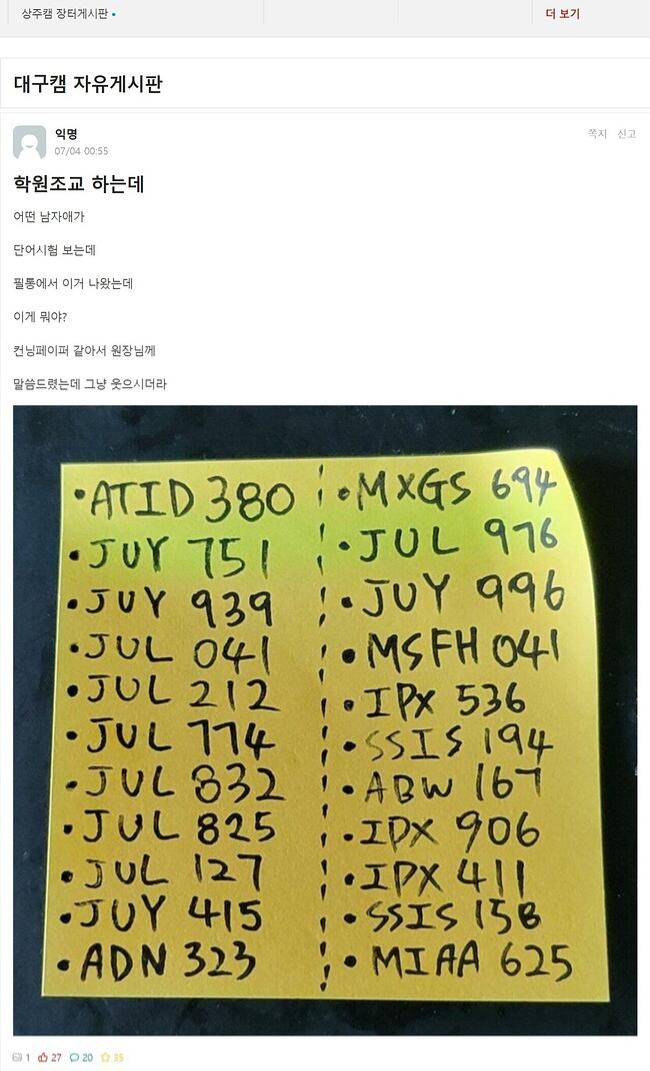 상주캠 장터게시판
더 보기
대구캠 자유게시판
익명
쪽지 신고
07/04 00:55
학원조교 하는데
어떤 남자애가
단어시험 보는데
필통에서 이거 나왔는데
이게 뭐야?
컨닝페이퍼 같아서 원장님께
말씀드렸는데 그냥 웃으시더라
• ATID 380
• JUY 751
• JUY 939
• JUL 041
• JUL 212
• JUL 774
• JUL 832
• JUL 825
• JUL 127
• JUY 415
• ADN 323
• MXGS 694
• JUL 976
• JUY 996
• MSFH 041
• IPX 536
• SSIS 194
• ABW 167
• IPX 906
• IPX 411
• SSIS 158
• MIAA 625
1 27 20 35